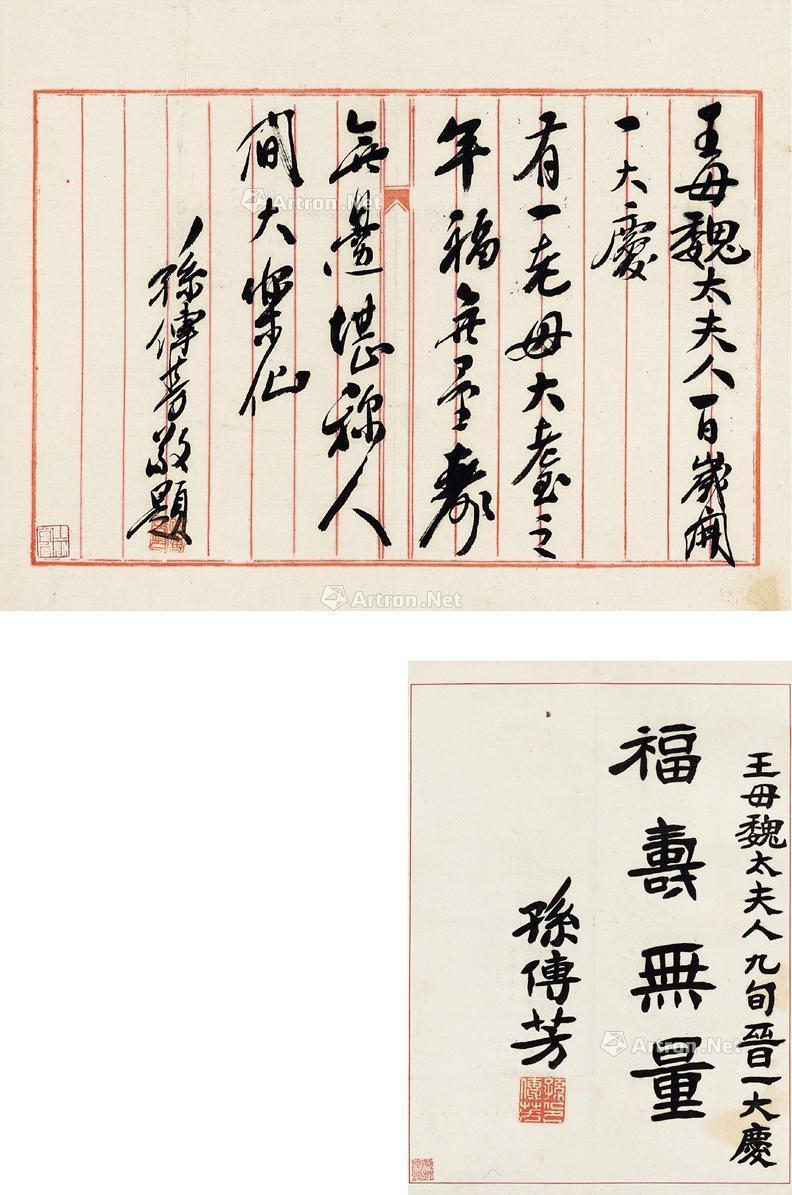 王母魏太夫人一百歲開
一大慶
有一老母大耋之
年福無量壽
無邊堪稱人
間大樂仙
孫傳芳敬題
王母魏太夫人九旬晉一大慶
福壽無量
孫傳芳
孫傳芳印
Artron.Net
Artron.Net
Artron.Net
Artron.Net